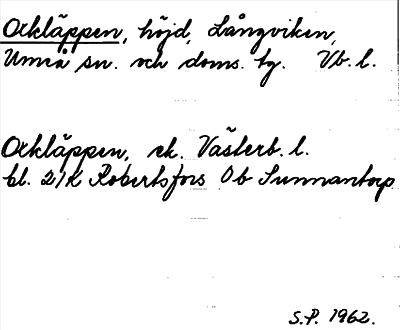 Orkläppen, höjd, Långviken,
Umeå sn. och doms. hg. Vb. l.
Orkläppen, ek. Västerb. l.
bl. 21K Robertsfors 0b Sunnantorp
S.P. 1962.